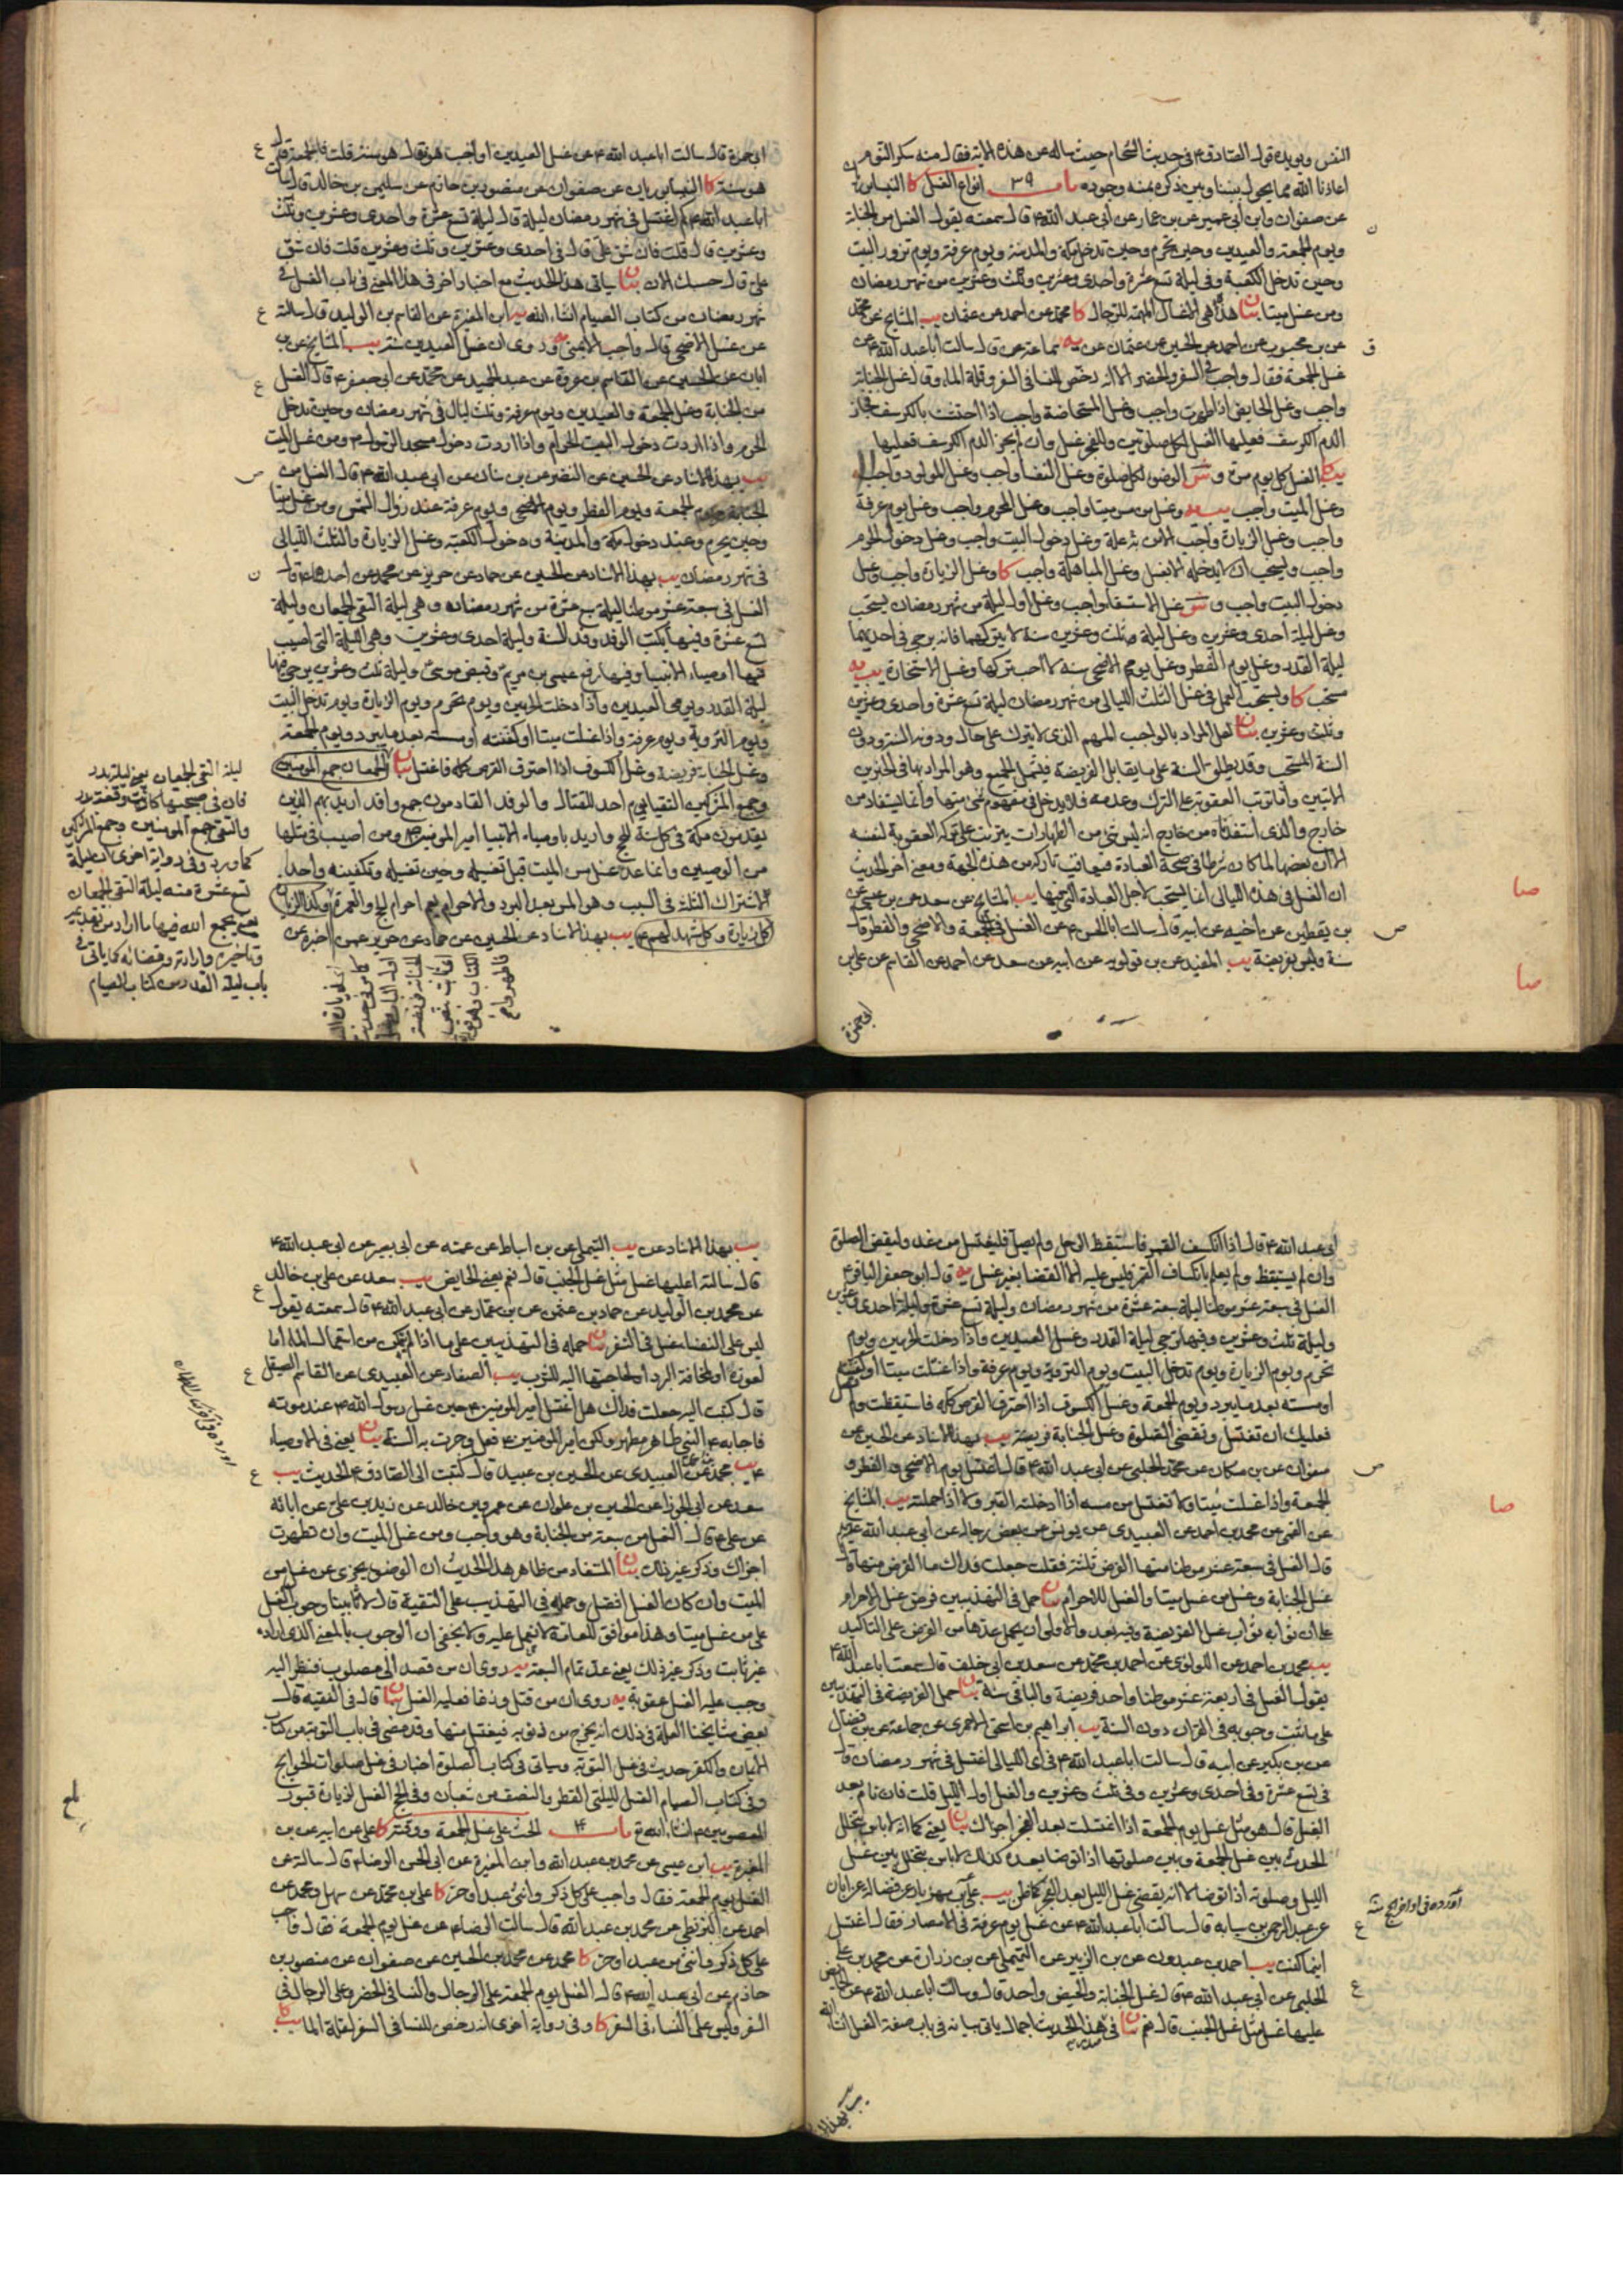 النفس ويؤيده قول الصادق ع في حديث الشحام حيث سأله عن هذه الآية فقال منه سكر النوم
اعاذنا الله مما يحول بيننا وبين ذكره بمنه وجوده باب ٣٩ انواع الغسل كا النيسابوريان
عن صفوان وابن أبي عمير عن بن عمار عن أبي عبد الله ع قال سمعته يقول الغسل من الجنابة
ويوم الجمعة والعيدين وحين تحرم وحين تدخل مكة والمدينة ويوم عرفة ويوم تزور البيت
وحين تدخل الكعبة وفي ليلة تسع عشرة واحدى وعشرين وثلث وعشرين من شهر رمضان
ومن غسل ميتا بيان هذه هي الاغسال المهمة للرجال كا محمد عن احمد عن عثمان يب المشايخ عن محمد
عن بن محبوب عن احمد عن الحسين عن عثمان عن يه سماعة عن قال سالت أبا عبد الله ع عن
غسل الجمعة فقال واجب في السفر والحضر الا انه رخص للنساء في السفر وقلة الماء وقال غسل الجنابة
واجب وغسل الحايض اذا طهرت واجب وغسل المستحاضة واجب اذا احتشت بالكرسف فجاز
الدم الكرسف فعليها الغسل لكل صلوتين وللفجر غسل وان لم يجز الدم الكرسف فعليها
يب كا الغسل كل يوم مرة و ش الوضوء لكل صلوة وغسل النفساء واجب وغسل المولود واجب
وغسل الميت واجب وغسل من مس ميتا واجب وغسل المحرم واجب وغسل يوم عرفة
واجب وغسل الزيارة واجب الا من به علة وغسل دخول البيت واجب وغسل دخول الحرم
واجب ويستحب ان لا يدخله الا بغسل وغسل المباهلة واجب كا وغسل الزيارة واجب وغسل
دخول البيت واجب و ش غسل الاستسقاء واجب وغسل أول ليلة من شهر رمضان يستحب
وغسل ليلة احدى وعشرين وغسل ليلة ثلث وعشرين سنة لا يتركها فانه يرجى في احديهما
ليلة القدر وغسل يوم الفطر وغسل يوم الاضحى سنة لا احب تركها وغسل الاستخارة يب يه
مستحب كا ويستحب العمل في غسل الثلث الليالي من شهر رمضان ليلة تسع عشرة واحدى وعشرين
وثلث وعشرين بيان لعل المراد بالواجب المهم الذي لا يترك على حال ودونه السنة ودون
السنة المستحب وقد يطلق السنة على ما يقابل الفريضة فيشمل الجميع وهو المراد بها في الخبرين
الآتيين واما ترتب العقوبة على الترك وعدمه فلا يدخل في مفهوم شئ منها وانما يستفاد من
خارج والذي استفدناه من خارج انه ليس شئ من الطهارات يترتب على تركه العقوبة لنفسه
الا ان بعضها لما كان شرطا في صحة العبادة فيعاقب تاركه من هذه الجهة ومعنى اخر الحديث
ان الغسل في هذه الليالي انما يستحب لاجل العبادة التي فيها يب المشايخ عن سعد عن بن عيسى عن
بن يقطين عن أخيه عن ابيه قال سالت ابا الحسن ع عن الغسل في الجمعة والاضحى والفطر قال
سنة وليس بفريضة يب المفيد عن بن قولويه عن ابيه عن سعد عن احمد عن القاسم عن علي بن
ابي حمزة
صا
صا
ابي حمزة قال سالت ابا عبد الله ع عن غسل العيدين اواجب هو فقال هو سنة قلت فالجمعة قال
هو سنة كا النيسابوريان عن صفوان عن منصور بن حازم عن سليمان بن خالد قال سالت
ابا عبد الله ع كم اغتسل في شهر رمضان ليلة قال ليلة تسع عشرة واحدى وعشرين وثلث
وعشرين قال قلت فان شق علي قال في احدى وعشرين وثلث وعشرين قلت فان شق
علي قال حسبك الان بيان ياتي هذا الحديث مع اخبار اخر في هذا المعنى في باب الغسل في
شهر رمضان من كتاب الصيام انشاء الله يب ابن المغيرة عن القاسم بن الوليد قال سالته
عن غسل الاضحى قال واجب الا بمنى يه وروى ان غسل العيدين سنة يب المشايخ عن بن
ابان عن الحسين عن القاسم بن عروة عن عبد الحميد عن محمد عن أبي جعفر ع قال الغسل
من الجنابة وغسل الجمعة والعيدين ويوم عرفة وثلث ليال في شهر رمضان وحين تدخل
الحرم واذا اردت دخول البيت الحرام واذا اردت دخول مسجد الرسول ص ومن غسل الميت
يب بهذا الاسناد عن الحسين عن النضر عن بن سنان عن ابي عبد الله ع قال الغسل من
الجنابة ويوم الجمعة ويوم الفطر ويوم الاضحى ويوم عرفة عند زوال الشمس ومن غسل ميتا
وحين يحرم وعند دخول مكة والمدينة ودخول الكعبة وغسل الزيارة والثلث الليالي
في شهر رمضان يب بهذا الاسناد عن الحسين عن حماد عن حريز عن محمد عن احدهما ع قال
الغسل في سبعة عشر موطنا ليلة سبع عشرة من شهر رمضان وهي ليلة التقى الجمعان وليلة
تسع عشرة وفيها يكتب الوفد وفد السنة وليلة احدى وعشرين وهي الليلة التي اصيب
فيها اوصياء الانبياء وفيها رفع عيسى بن مريم وقبض موسى وليلة ثلث وعشرين يرجى فيها
ليلة القدر ويومي العيدين واذا دخلت الحرمين ويوم تحرم ويوم الزيارة ويوم تدخل البيت
ويوم التروية ويوم عرفة واذا غسلت ميتا او كفنته او مسسته بعد ما يبرد ويوم الجمعة
وغسل الجنابة فريضة وغسل الكسوف اذا احترق القرص كله فاغتسل بيان الجمعان جمع المؤمنين
وجمع المشركين التقيا يوم احد للقتال والوفد القادمون جمع وافد اريد بهم الذين
يقدمون مكة في كل سنة للحج واريد باوصياء الانبياء امير المؤمنين ع ومن اصيب في مثلها
من الوصيين وانما عد غسل مس الميت قبل تغسيله وحين تغسيله وتكفينه واحدا
لاشتراك الثلثة في السبب وهو المس بعد البرد والاحرام يعم احرام الحج والعمرة وكذا الزيارة
كل زيارة وكل مشهد لهم ع يب بهذا الاسناد عن الحسين عن حماد عن حريز عمن اخبره عن
ليلة التقى الجمعان يعني ليلة بدر
فان في صبيحتها كانت وقعة بدر
والتقى جمع المؤمنين وجمع المشركين
كما ورد وفي رواية اخرى ان ليلة
تسع عشرة منه ليلة التقى الجمعان
يعني يجمع الله فيها ما اراد من تقديمه
وتاخيره وارادته وقضائه كما ياتي في
باب ليلة القدر من كتاب الصيام
ابي عبد الله ع قال اذا انكسف القمر فاستيقظ الرجل ولم يصل فليغتسل من غد وليقض الصلوة
وان لم يستيقظ ولم يعلم بانكساف القمر فليس عليه الا القضاء بغير غسل يه قال ابو جعفر الباقر ع
الغسل في سبعة عشر موطنا ليلة سبع عشرة من شهر رمضان وليلة تسع عشرة وليلة احدى وعشرين
وليلة ثلث وعشرين وفيها ترجى ليلة القدر وغسل العيدين واذا دخلت الحرمين ويوم
تحرم ويوم الزيارة ويوم تدخل البيت ويوم التروية ويوم عرفة واذا غسلت ميتا او كفنته
او مسسته بعد ما يبرد ويوم الجمعة وغسل الكسوف اذا احترق القرص كله فاستيقظت ولم تصل
فعليك ان تغتسل وتقضي الصلوة وغسل الجنابة فريضة يب بهذا الاسناد عن الحسين عن
صفوان عن بن مسكان عن محمد الحلبي عن ابي عبد الله ع قال اغتسل يوم الاضحى والفطر و
الجمعة واذا غسلت ميتا ولا تغتسل من مسه اذا ادخلته القبر ولا اذا حملته يب المشايخ
عن القمي عن محمد بن احمد عن العبيدي عن يونس عن بعض رجاله عن ابي عبد الله ع
قال الغسل في سبعة عشر موطنا منها الفرض ثلثة فقلت جعلت فداك ما الفرض منها قال
غسل الجنابة وغسل من غسل ميتا والغسل للاحرام بيان حمل في التهذيبين فرض غسل الاحرام
على ان ثوابه ثواب غسل الفريضة وفيه بعد والاولى ان يحمل عدها من الفرض على التاكيد
يب محمد بن احمد عن اللولوي عن احمد بن محمد عن سعد بن ابي خلف قال سمعت ابا عبد الله ع
يقول الغسل في اربعة عشر موطنا واحد فريضة والباقي سنة بيان حمل الفريضة في التهذيبين
على ما ثبت وجوبه في القران دون السنة يب ابراهيم بن اسحق الاحمري عن جماعة عن بن فضال
عن بن بكير عن ابيه قال سالت ابا عبد الله ع في اي الليالي اغتسل في شهر رمضان قال
في تسع عشرة وفي احدى وعشرين وفي ثلث وعشرين والغسل اول الليل قلت فان نام بعد
الغسل قال هو مثل غسل يوم الجمعة اذا اغتسلت بعد الفجر اجزاك بيان يعني كما انه لا باس بتخلل
الحدث بين غسل الجمعة وبين صلوتها اذا توضا بعده كذلك لا باس بتخلل بين غسل
الليل وصلوته اذا توضا الا انه يقضي غسل الليل بعد الفجر يب علي بن مهزيار عن فضالة عن ابان
عن عبد الرحمن بن سيابة قال سالت ابا عبد الله ع عن غسل يوم عرفة في الامصار فقال اغتسل
اينما كنت يب احمد بن عبدون عن بن الزبير عن التيملي عن بن زرارة عن محمد بن علي
الحلبي عن ابي عبد الله ع قال غسل الجنابة والحيض واحد قال وسالت ابا عبد الله ع عن الحايض
عليها غسل مثل غسل الجنب قال نعم بيان في هذا الحديث اجمال ياتي بيانه في باب صفة الغسل انشاء الله
يب بهذا الا
صا
يب بهذا الاسناد عن يب التيملي عن بن اسباط عن عمه عن ابي بصير عن ابي عبد الله ع
قال سالته اعليها غسل مثل غسل الجنب قال نعم يعني الحايض يب سعد عن علي بن خالد
عن محمد بن الوليد عن حماد بن عثمن عن بن عمار عن ابي عبد الله ع قال سمعته يقول
ليس على النفساء غسل في السفر بيان حمله في التهذيبين على ما اذا لم يتمكن من استعمال الماء اما
لعوزه او لمخافة البرد او لحاجتها اليه للشرب يب الصفار عن العبيدي عن القاسم الصيقل
قال كتبت اليه جعلت فداك هل اغتسل امير المؤمنين ع حين غسل رسول الله ع عند موته
فاجابه ع النبي طاهر مطهر ولكن امير المؤمنين ع فعل وجرت به السنة بيان يعني في الاوصياء
ع يب محمد عن العبيدي عن الحسين بن عبيد قال كتبت الى الصادق ع الحديث يب
سعد عن ابي الجوزا عن الحسين بن علوان عن عمرو بن خالد عن زيد بن علي عن ابائه
عن علي ع قال الغسل من سبعة من الجنابة وهو واجب ومن غسل الميت وان تطهرت
اجزاك وذكر غير ذلك بيان المستفاد من ظاهر هذا الحديث ان الوضوء يجزي عن غسل مس
الميت وان كان الغسل افضل وحمله في التهذيب على التقية قال لانا بينا وجوب الغسل
على من غسل ميتا وهذا موافق للعامة لا نعمل عليه ولا يخفى ان الوجوب بالمعنى الذي اراده
غير ثابت وذكر غير ذلك يعني عد تمام السبعة يه روى ان من قصد الى مصلوب فنظر اليه
وجب عليه الغسل عقوبة يه روى ان من قتل وزغا فعليه الغسل بيان قال في الفقيه قال
بعض مشايخنا العلة في ذلك انه يخرج من ذنوبه فيغتسل منها وقد مضى في باب التوبة من كتاب
الايمان والكفر حديث في غسل التوبة وسياتي في كتاب الصلوة اخبار في غسل صلوات الحوايج
وفي كتاب الصيام الغسل لليلتي الفطر والنصف من شعبان وفي الحج الغسل لزيارة قبور
المعصومين ع انشاء الله تع باب ۴۰ الحث على غسل الجمعة ووقته كا علي عن ابيه عن بن
المغيرة يب ابن عيسى عن محمد بن عبد الله وابن المغيرة عن ابي الحسن الرضا ع قال سالته عن
الغسل يوم الجمعة فقال واجب على كل ذكر وانثى عبد او حر كا علي بن محمد عن سهل ومحمد عن
احمد عن البزنطي عن محمد بن عبد الله قال سالت الرضا ع عن غسل يوم الجمعة فقال واجب
على كل ذكر وانثى من عبد او حر كا محمد عن محمد بن الحسين عن صفوان عن منصور بن
حازم عن ابي عبد الله ع قال الغسل يوم الجمعة على الرجال والنساء في الحضر وعلى الرجال في
السفر وليس على النساء في السفر كا وفي رواية اخرى انه رخص للنساء في السفر لقلة الماء يب كا